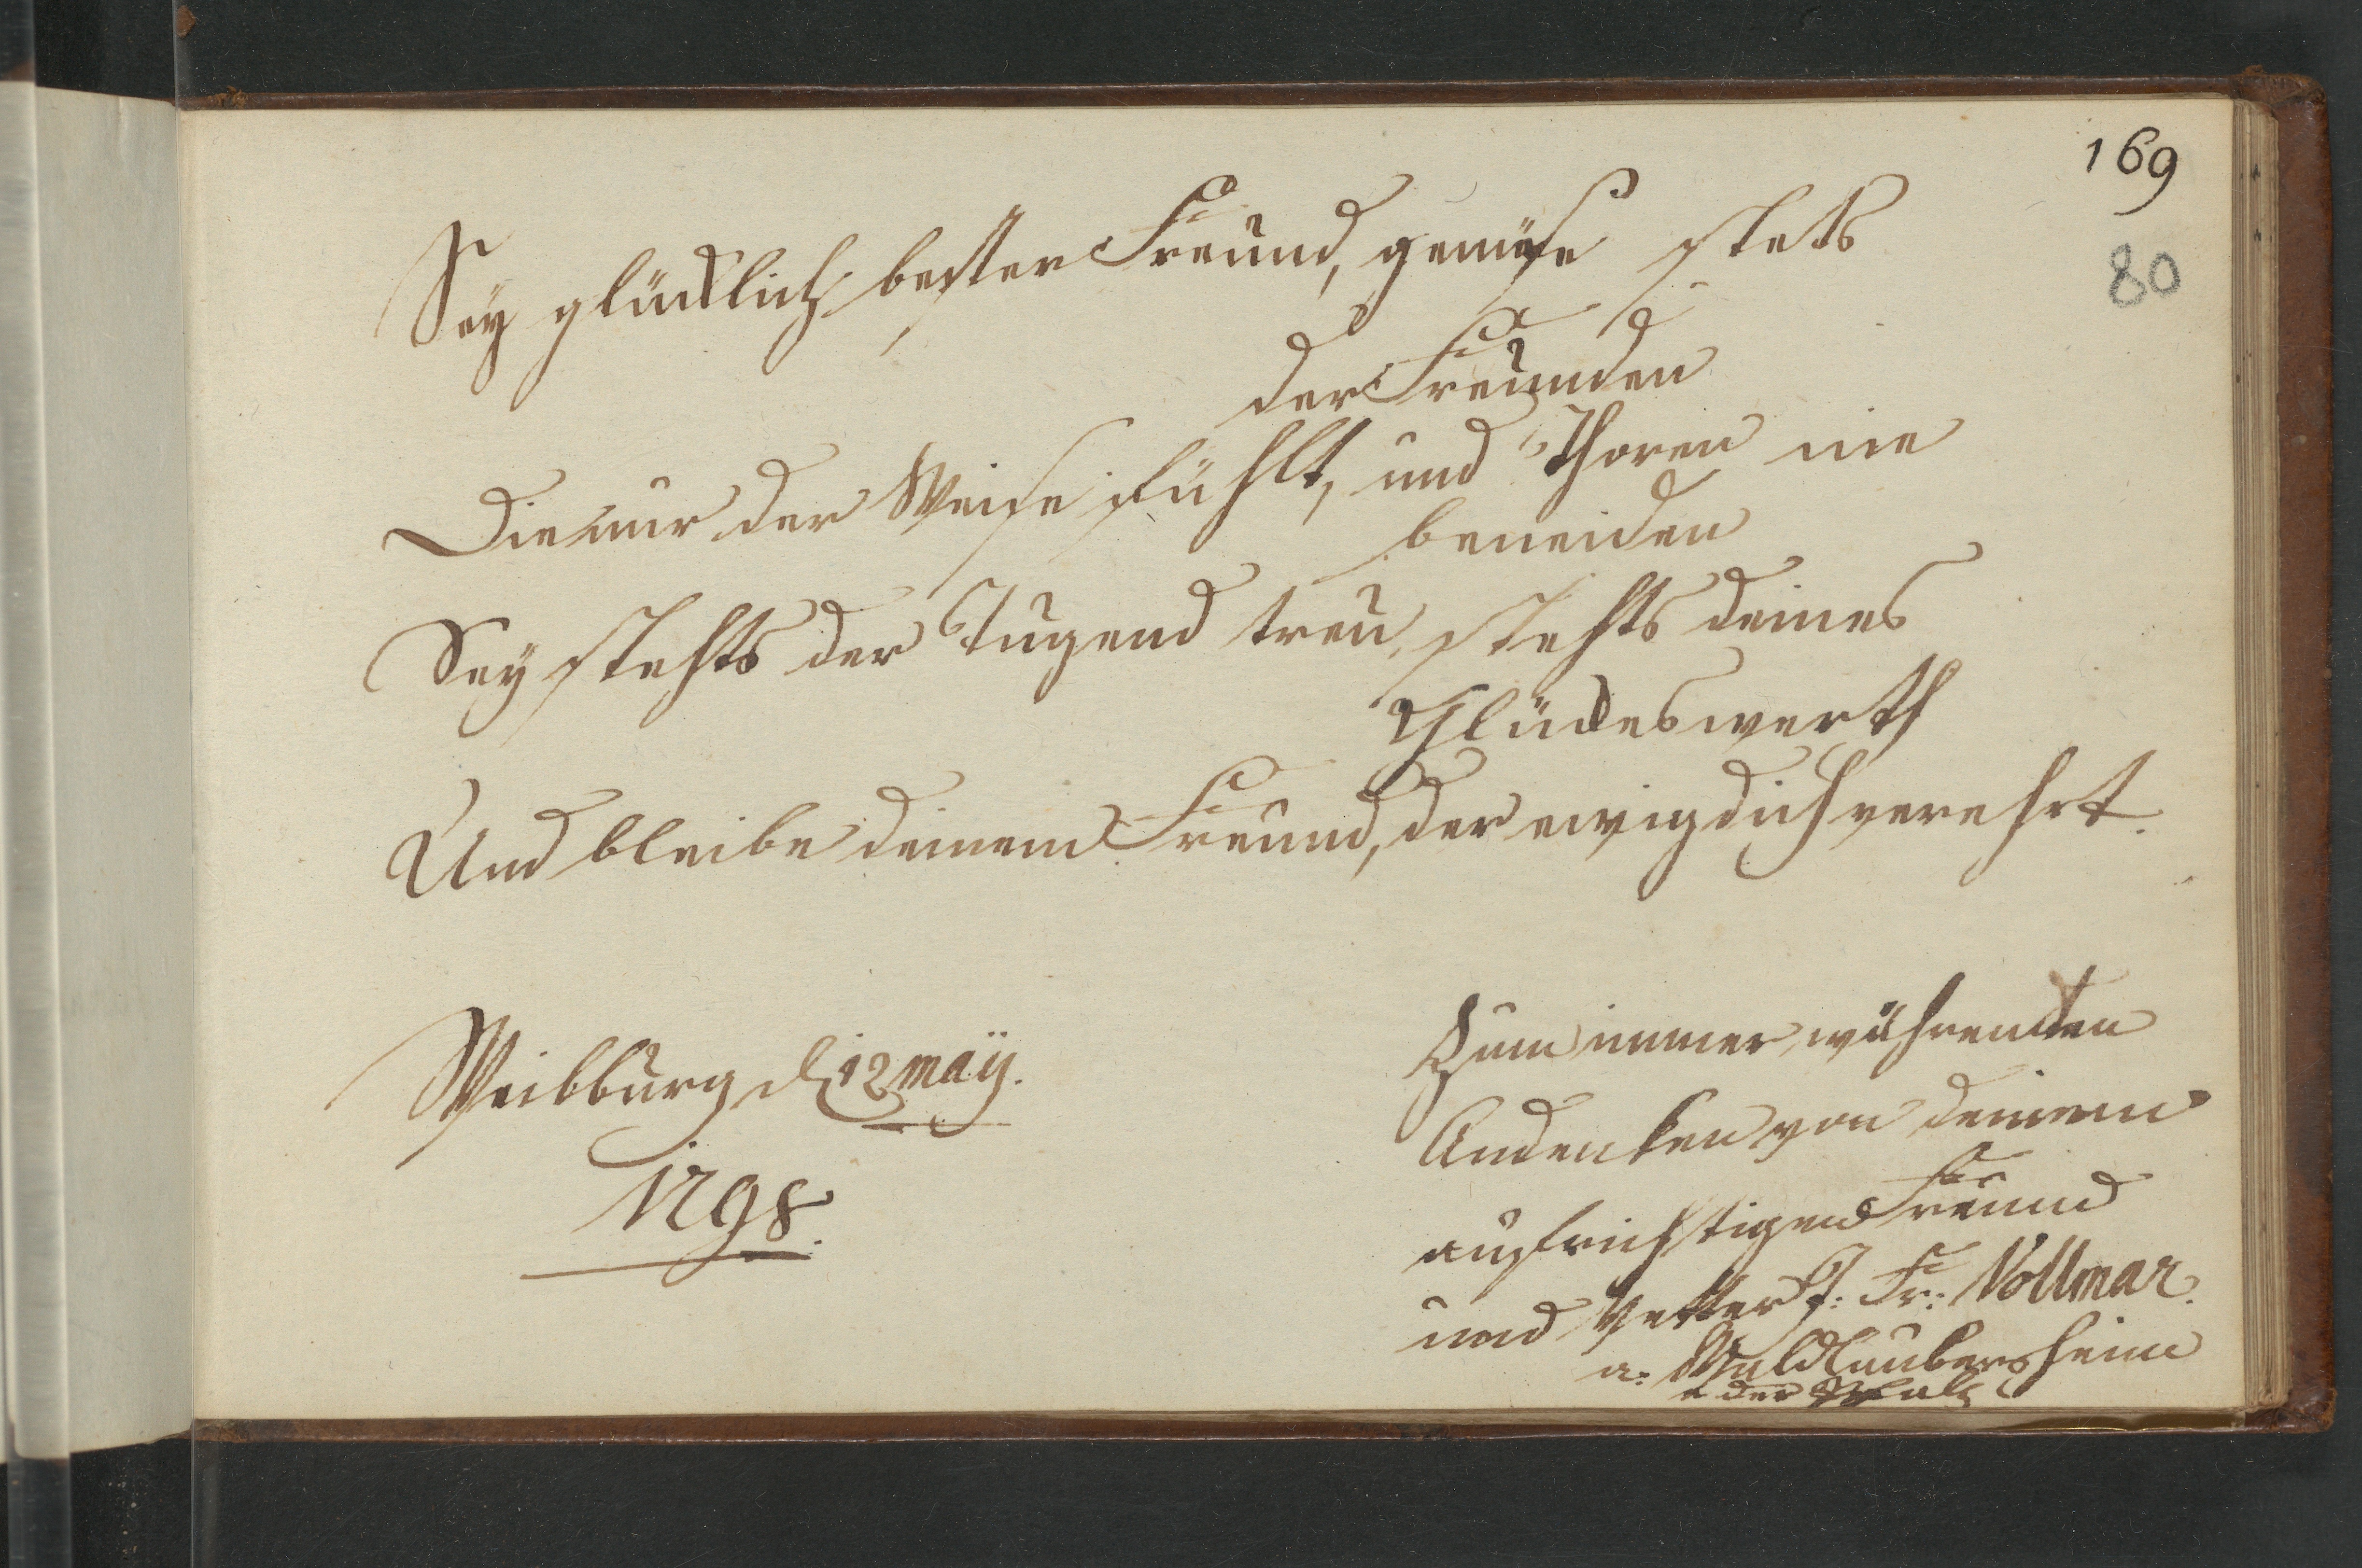 169
80
Sey glücklich bester Freund, genüße stets
der Freunden
Die nur der Weise fühlt, und Thoren nie
beneiden
Sey stehts der Tugend treu, stehts deines
Glückes werth
Und bleibe deinem Freund, der ewig dich verehrt.
Weilburg d 12 maÿ.
1798.
Zum immer währenden
Andenken von deinem
aufrichtigen Freund
und Vetter J: Fr: Vollmar.
a: Waldlaubersheim
a der Pfalz